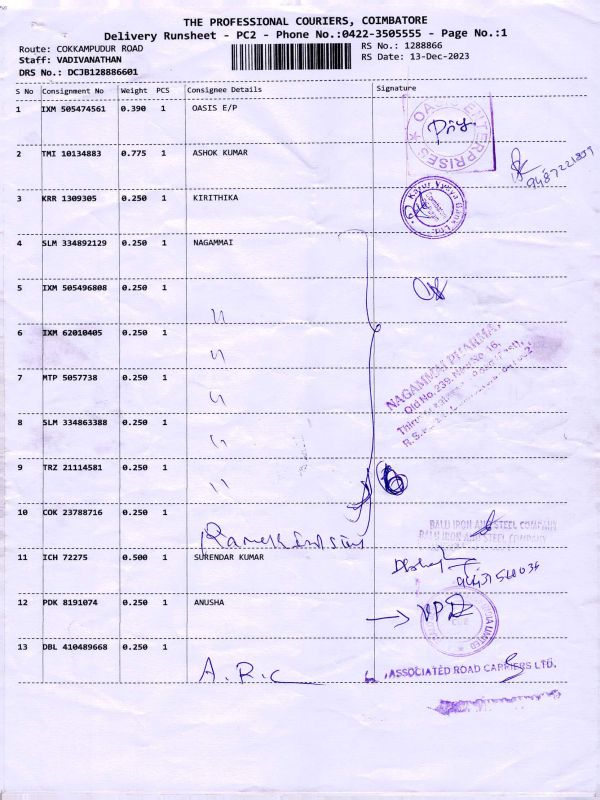 THE PROFESSIONAL COURIERS, COIMBATORE
Delivery Runsheet - PC2 - Phone No.:0422-3505555 - Page No.:1
Route: COKKAMPUDUR ROAD
RS No.: 1288866
Staff: VADIVANATHAN
RS Date: 13-Dec-2023
DRS No.: DCJB128886601
S No Consignment No Weight PCS Consignee Details Signature
1 IXM 505474561 0.390 1 OASIS E/P
OASIS ENTERPRISES
2 TMI 10134883 0.775 1 ASHOK KUMAR
3 KRR 1309305 0.250 1 KIRITHIKA
4 SLM 334892129 0.250 1 NAGAMMAI
5 IXM 505496808 0.250 1
6 IXM 62010405 0.250 1
7 MTP 5057738 0.250 1
NAGAMMAI PHARMA,
Old No. 239, New No. 16,
8 SLM 334863388 0.250 1
9 TRZ 21114581 0.250 1
6
10 COK 23788716 0.250 1
BALU IRON AND STEEL COMPANY
BALU IRON AND STEEL COMPANY
11 ICH 72275 0.500 1 SURENDAR KUMAR
12 PDK 8191074 0.250 1 ANUSHA
13 DBL 410489668 0.250 1
A.R.C
ASSOCIATED ROAD CARRIERS LTD.